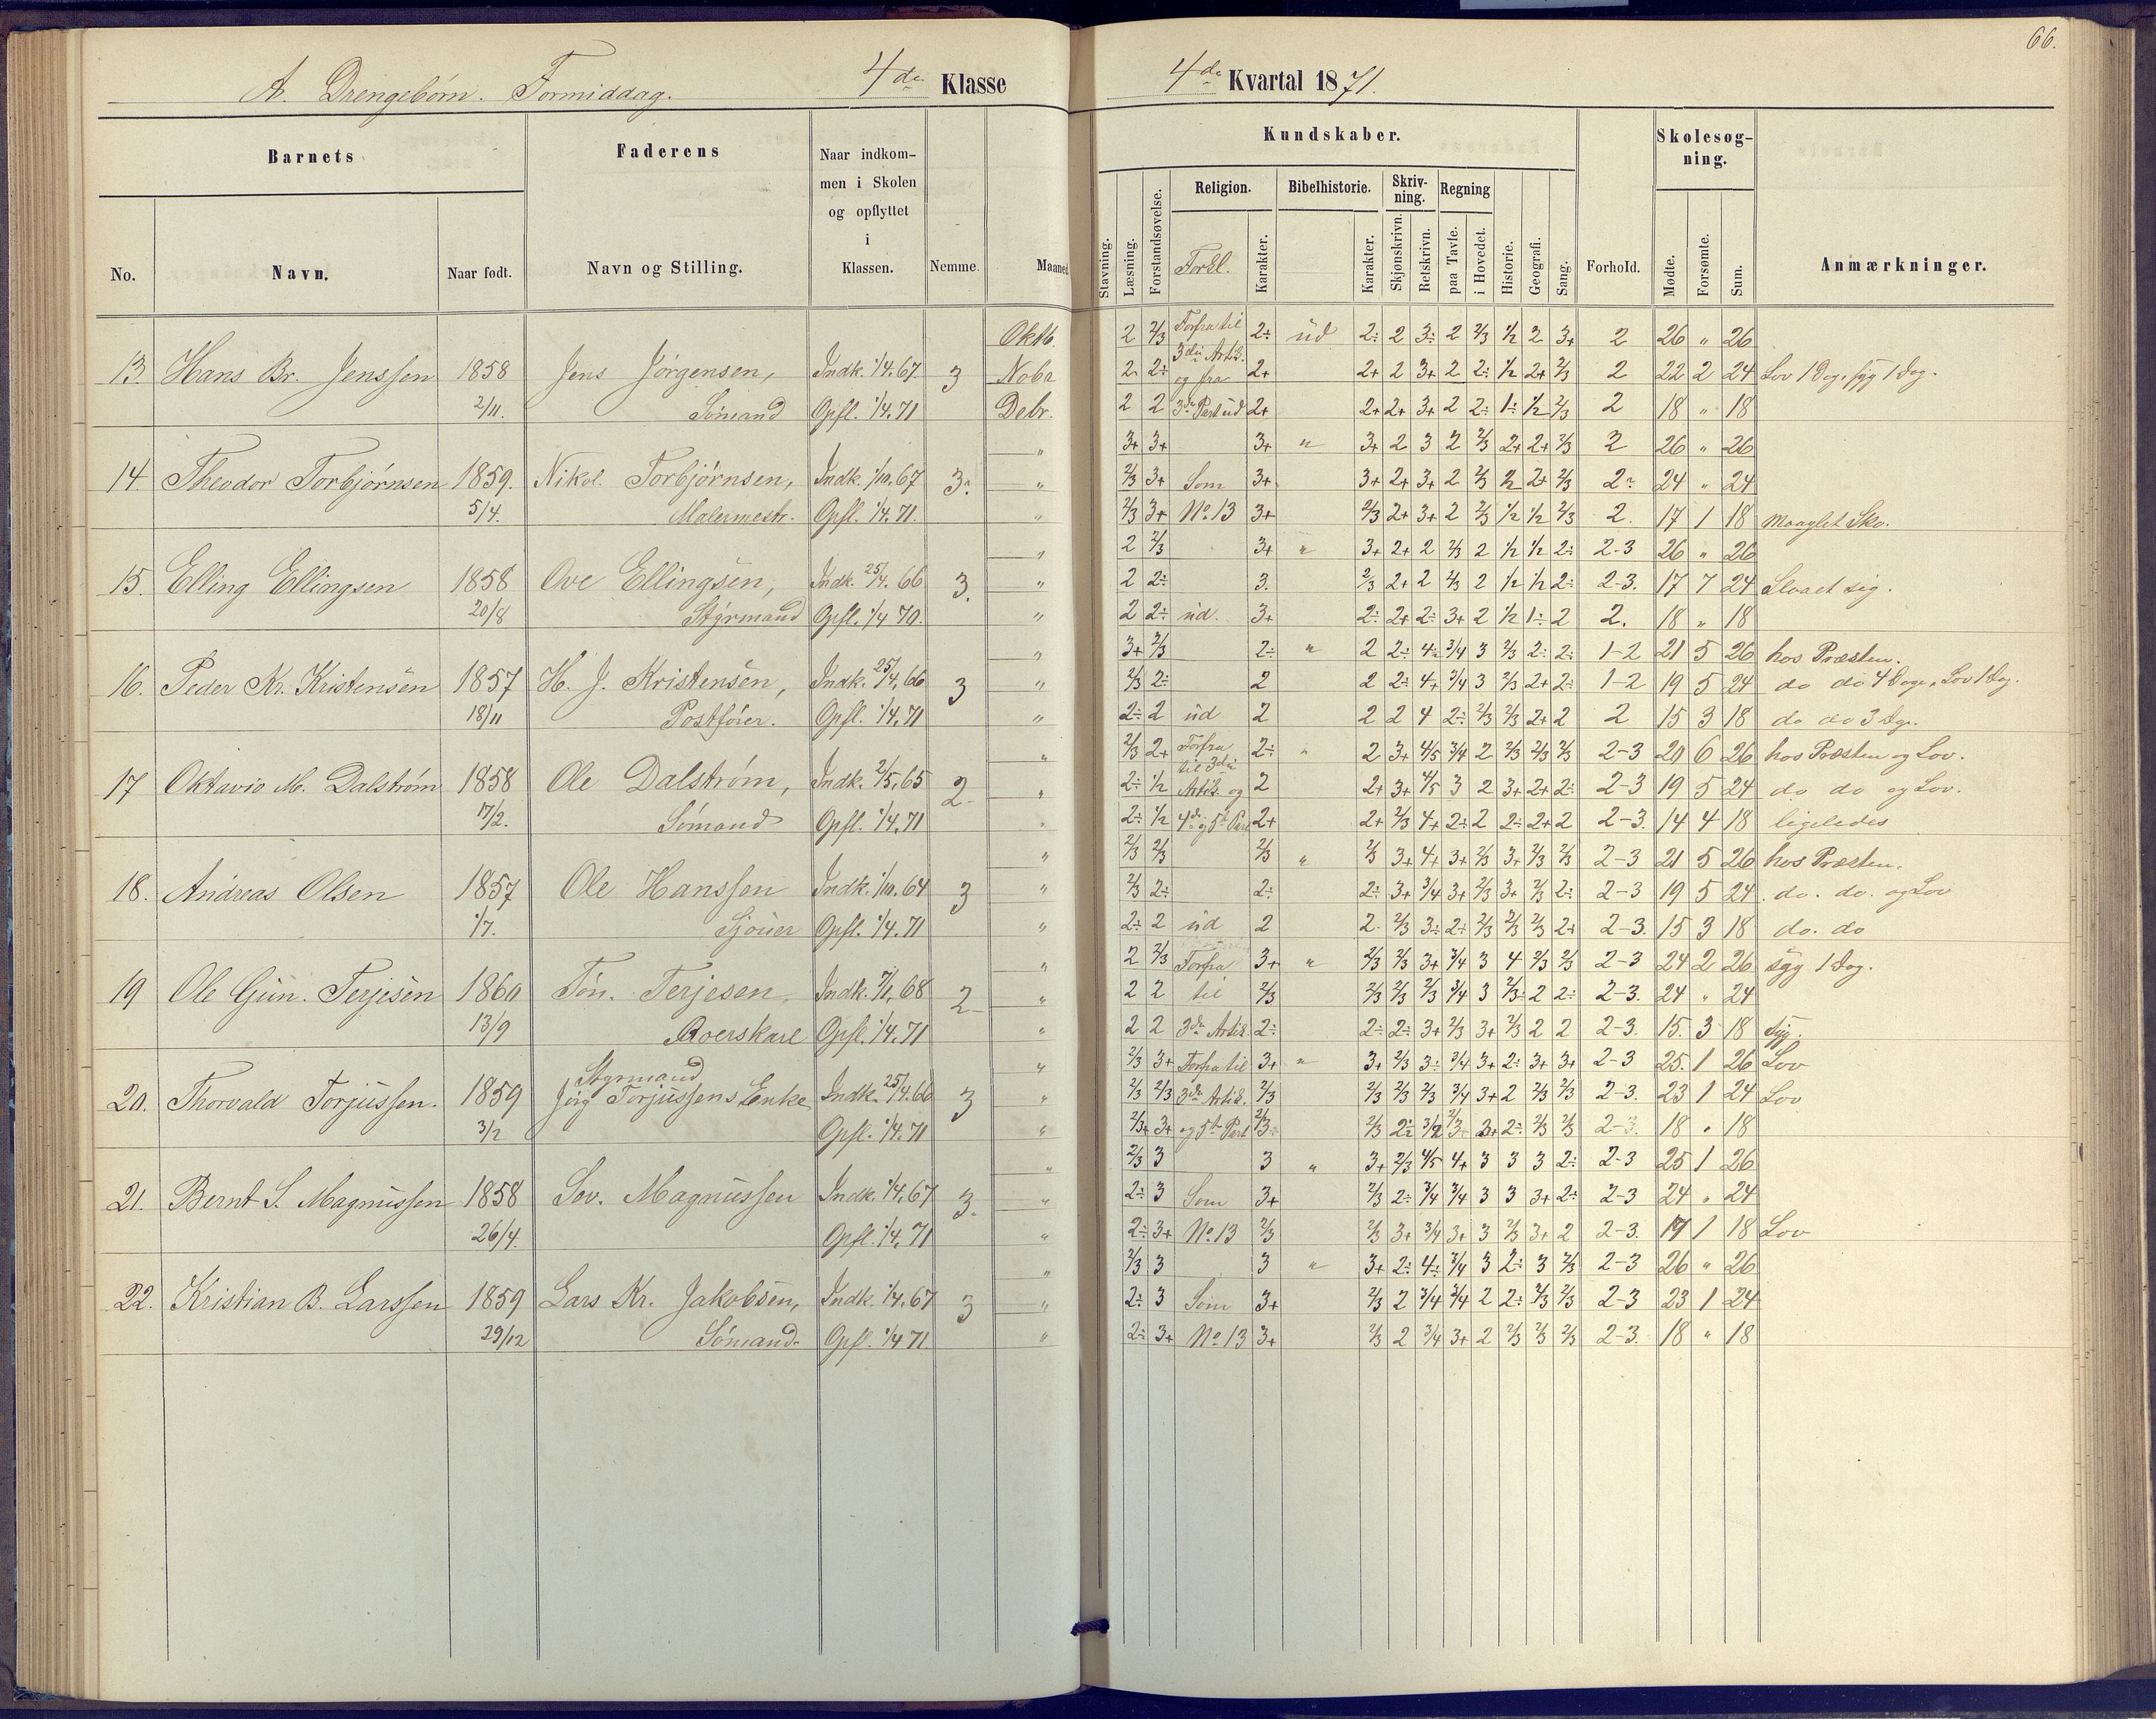 66.
A. Drengebørn. Formiddag. 4de Klasse 4de Kvartal 1871.
Barnets Faderens Naar indkom-
men i Skolen
og opflyttet
i
Klassen.
No. Navn. Naar født. Navn og Stilling. Nemme. Maaned
Kundskaber. Skolesøg-
ning.
Stavning. Læsning. Forstandsøvelse. Religion. Bibelhistorie. Skriv-
ning. Regning
Forkl. Karakter. Karakter. Skjønskrivn. Retskrivn. paa Tavle. i Hovedet. Historie. Geografi. Sang. Forhold. Mødte. Forsømte. Sum. Anmærkninger.
Oktb. 2 2/3 Forfra til 2÷ ud 2÷ 2 3÷ 2 2/3 1/2 2 3+ 2 26 " 26
13. Hans Br. Jenssen 1858 Jens Jørgensen, Indk. 1/4.67 3 Nobr 2 2÷ 3die Artik. og fra 2+ 2+ 2 3+ 2 2÷ 1/2 2+ 2/3 2 22 2 24 Lov 1 Dag, syg 1 Dag.
2/11. Sømand Opfl. 1/4.71 Debr. 2 2 3de Part ud 2+ 2+ 2+ 3+ 2 2÷ 1÷ 1/2 2/3 2 18 " 18
" 3+ 3+ 3+ " 3+ 2 3 2 2/3 2+ 2+ 2/3 2 26 " 26
14. Theodor Torbjørnsen 1859. Nikol. Torbjørnsen, Indk. 1/10.67 3. " 2/3 3+ Som 3+ 3+ 2+ 3+ 2 2/3 1/2 2+ 2/3 2 24 " 24
5/4. Malermestr. Opfl. 1/4.71. " 2/3 3+ No 13 3+ 2/3 2+ 3+ 2 2/3 1/2 1/2 2/3 2. 17 1 18 Manglet Sko.
" 2 2/3 3+ " 3+ 2+ 2 2/3 2 1/2 1/2 2÷ 2-3 26 " 26
15. Elling Ellingsen 1858 Ove Ellingsen, Indk. 25/4.66 3. " 2 2÷ 3. 2/3 2+ 2 2/3 2 1/2 1/2 2÷ 2-3. 17 7 24 Slaaet sig.
20/8 Styrmand Opfl. 1/4 70. " 2 2÷ ud. 3+ 2÷ 2+ 2÷ 3+ 2 1/2 1÷ 2 2. 18 " 18
" 3+ 2/3 2÷ " 2 2÷ 4÷ 3/4 3 2/3 2÷ 2÷ 1-2 21 5 26 hos Præsten.
16. Peder Kr. Kristensen 1857 H. J. Kristensen, Indk. 25/4.66 3 " 2/3 2÷ 2 2 2÷ 4+ 3/4 3 2/3 2+ 2÷ 1-2 19 5 24 do do 4 Dage, Lov 1 Dag.
18/11 Postfører. Opfl. 1/4.71 " 2÷ 2 ud 2 2 2 4 2÷ 2/3 2/3 2+ 2 2 15 3 18 do do 3 Dge.
" 2/3 2+ Forfra 2÷ " 2 3+ 4/5 3/4 2 2/3 2/3 2/3 2-3 20 6 26 hos Præsten og Lov.
17 Oktavio M. Dalstrøm 1858 Ole Dalstrøm, Indk. 2/5.65 2 " 2÷ 1/2 til 3die Artik. og 2 2+ 3+ 4/5 3 2 3+ 2+ 2÷ 2-3 19 5 24 do do og Lov.
17/2. Sømand Opfl. 1/4.71 " 2÷ 1/2 4de og 5te Part 2+ 2+ 2/3 4+ 2÷ 2 2÷ 2+ 2 2-3. 14 4 18 ligeledes
" 2/3 2/3 2/3 " 2/3 3+ 4+ 3+ 2/3 3+ 2/3 2/3 2-3 21 5 26 hos Præsten.
18. Andreas Olsen 1857 Ole Hanssen Indk. 1/10.64 3 " 2/3 2÷ 2÷ 2÷ 3+ 3/4 3+ 2/3 3+ 2/3 2÷ 2-3 19 5 24 do. do. og Lov
1/7. Sjouer Opfl. 1/4.71 " 2÷ 2 ud 2 2. 2/3 3÷ 2÷ 2/3 2/3 2/3 2+ 2-3. 15 3 18 do. do
" 2 2/3 Forfra 3+ " 2/3 2/3 3+ 3/4 3 4 2/3 2/3 2-3 24 2 26 syg 1 Dag.
19 Ole Gun. Terjesen 1860 Tøn. Terjesen, Indk. 7/1.68 2 " 2 2 til 2/3 2/3 2/3 2/3 3/4 3 2/3÷ 2 2÷ 2-3. 24 " 24
13/9 Roerskarl Opfl. 1/4.71 " 2 2 3die Artik. 2÷ 2÷ 2÷ 3+ 2/3 3+ 2/3 2 2 2-3. 15. 3 18 Syg.
Styrmand " 2/3 3+ Forfra til 3+ " 3+ 2/3 3÷ 3/4 3+ 2÷ 3+ 3+ 2-3 25. 1 26 Lov
20. Thorvald Torjussen. 1859 Jørg Torjussens Enke Indk. 25/4.66 3 " 2/3 2/3 3die Artik. 2/3 2/3 2/3 2/3 3/4 3+ 2 2/3 2/3 2-3. 23 1 24 Lov
3/2 Opfl. 1/4.71 " 2/3+ 3+ og 5te Part 2/3 2/3 2÷ 3/2 2/3 3+ 2÷ 2/3 2/3 2-3. 18 " 18
" 2/3 3 3 " 3+ 2/3 4/5 4+ 3 3 3 2÷ 2-3 25 1 26
21. Bernt S. Magnussen 1858 Sev. Magnussen Indk. 1/4.67 3. " 2÷ 3 Som 3+ 2/3 2÷ 3/4 3/4 3 3 3+ 2÷ 2-3 24 " 24
26/4. Opfl. 1/4.71 " 2÷ 3+ No 13 2/3 2/3 3+ 3/4 3+ 3 2/3 3+ 2 2-3. 17 1 18 Lov
" 2/3 3 3 " 3+ 2÷ 4÷ 3/4 3 2÷ 3 2/3 2-3 26 " 26
22. Kristian B. Larssen 1859 Lars Kr. Jakobsen, Indk. 1/4.67 3 " 2÷ 3 Som 3+ 2/3 2 3/4 3/4 2 2÷ 2/3 2/3 2-3 23 1 24
29/12 Sømand. Opfl. 1/4 71. " 2÷ 3+ No 13 3+ 2/3 2 3/4 3+ 2 2/3 2/3 2/3 2-3. 18 " 18